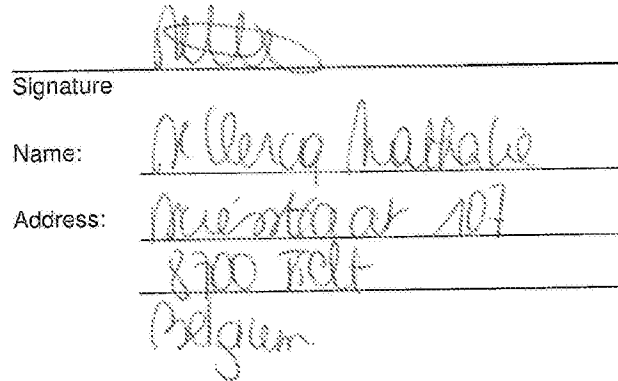 Signature
Name: De Clercq Nathalie
Address: 107
8700 Tielt
Belgium